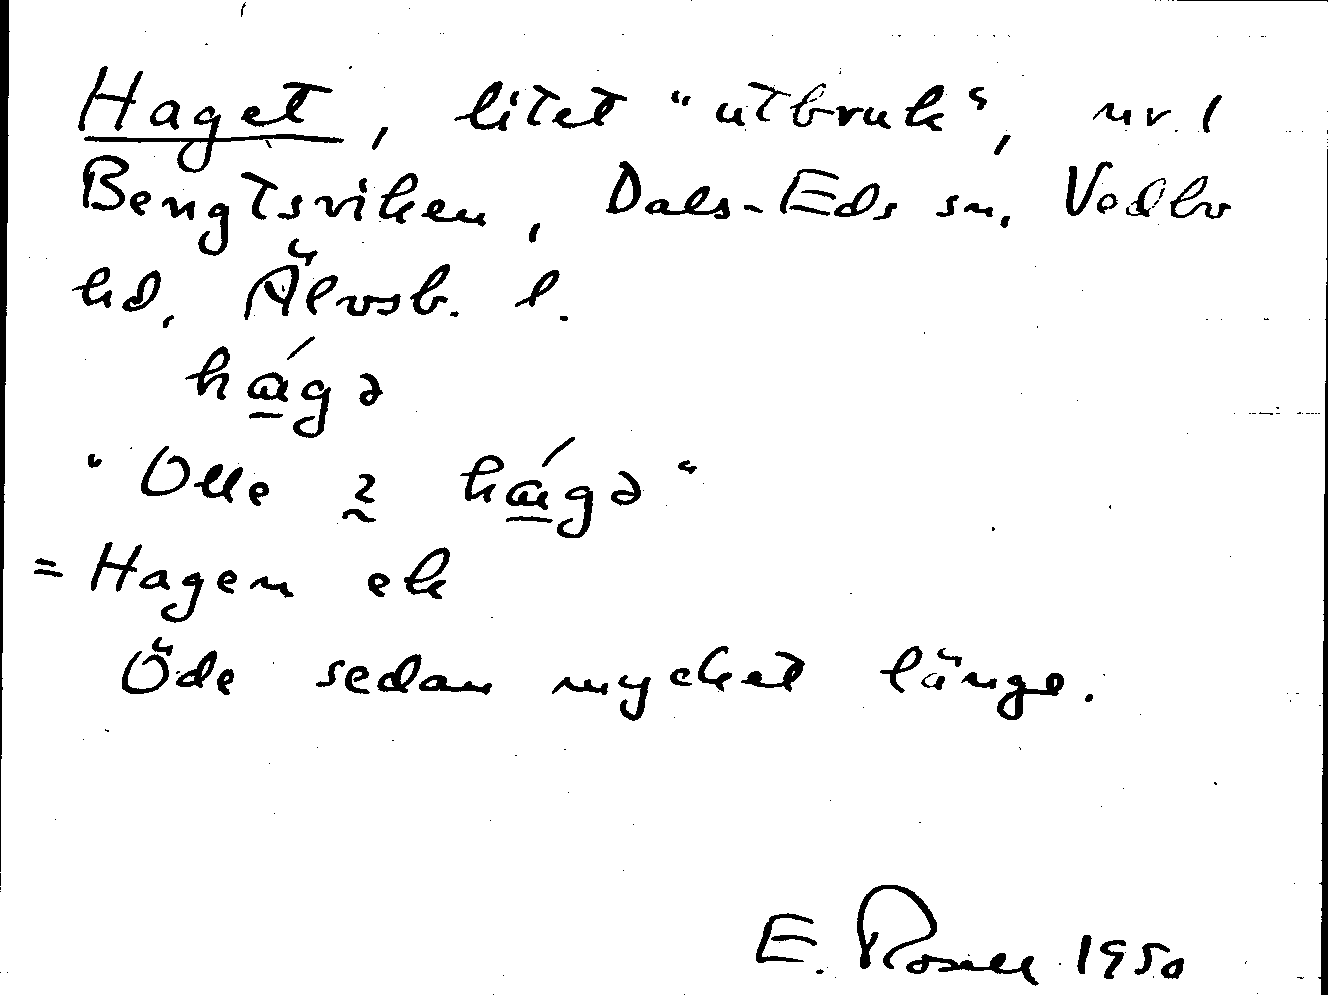 Haget, litet "utbruk", nr 1
Bengtsviken, Dals-Eds sn, Vedbo
hd, Älvsb. l.
há̱gə
"Olle 2̰ há̱gə"
= Hagen ek
Öde sedan mycket länge.
E. Rosell 1950